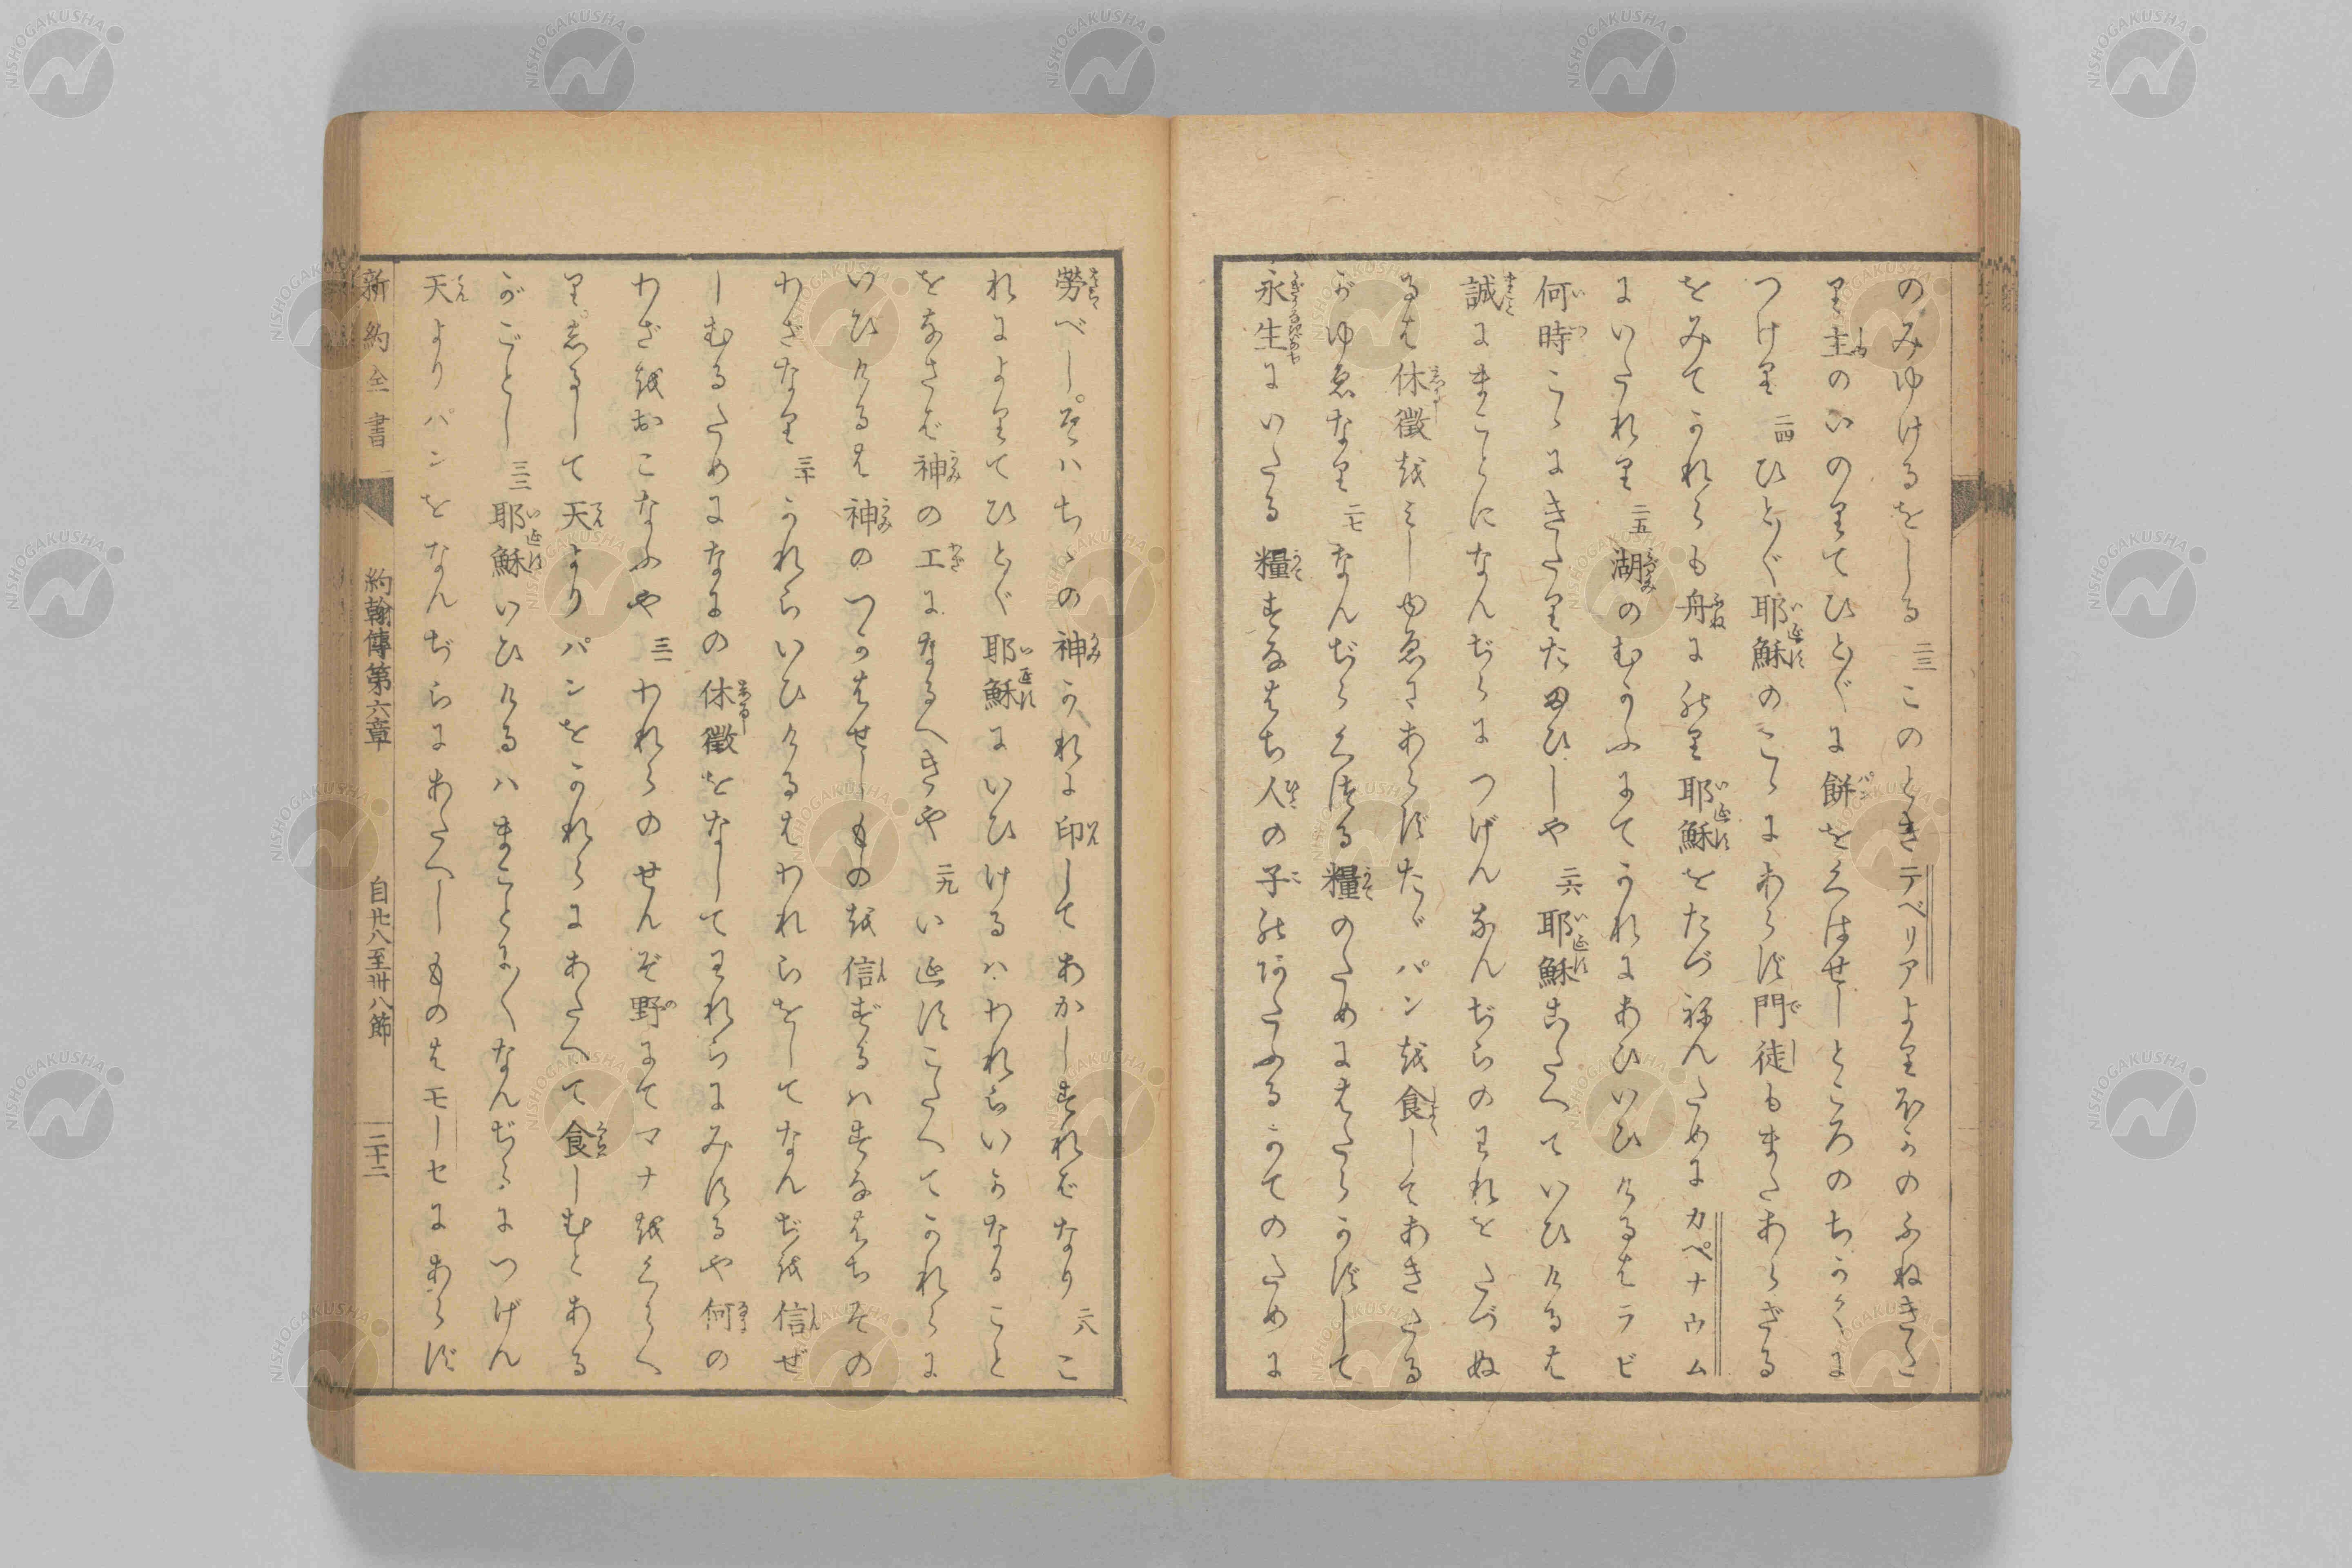 のみゆけるをしる 二三 このときテベリアよりほかのふねきた
り主のいのりてひとびとに餅をくはせしところのちかくに
つけり 二四 ひとびと耶穌のこゝにあらず門徒もまたあらざる
をみてかれらも舟に乗り耶穌をたづねんためにカペナウム
にいたれり 二五 湖のむかふにてかれにあひいひけるはラビ
何時こゝにきたりたまひしや 二六 耶穌こたへていひけるは
誠にまことになんぢらにつげんなんぢらのわれをたづぬ
るは休徴をみしゆゑにあらずたゞパンを食してあきたる
がゆゑなり 二七 なんぢらくつる糧のためにはたらかずして
永生にいたる糧すなはち人の子のあたふるかてのために
労べし。そハちゝの神かれに印してあかしすればなり 二八 こ
れによりてひとびと耶穌にいひけるハわれらいかなること
をなさば神の工になるへきや 二九 いゑすこたへてかれらに
いひけるは神のつかはせしものを信ずるハすなはちその
わざなり 三十 かれらいひけるはわれらをしてなんぢを信ぜ
しむるためになにの休徴をなしてわれらにみするや何の
わざをおこなふや 三一 われらのせんぞ野にてマナをくらへ
り。しるして天よりパンをかれらにあたへて食しむとある
がごとし 三二 耶穌いひけるハまことにまことになんぢらにつげん
天よりパンをなんぢらにあたへしものはモーセにあらず
新約全書 約翰傳第六章 自廿八至卅八節 二十二